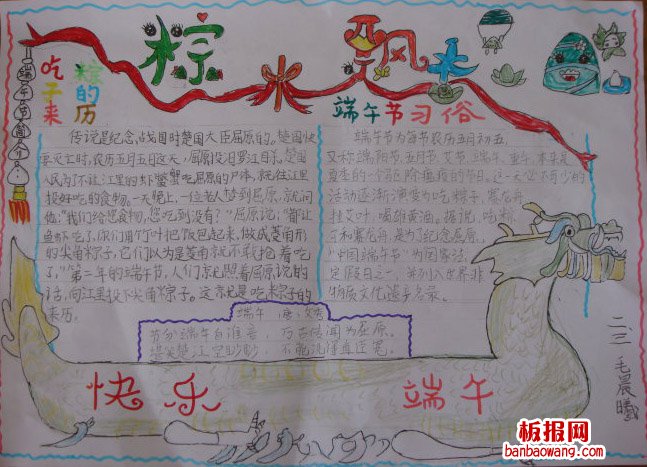 粽
飘
吃粽
子的
来历
端午节习俗
端午节简介
传说是纪念战国时楚国大臣屈原的。楚国快
亡时,农历五月五日这天,屈原投汨罗江自杀。楚国
人民为了不让江里的虾蟹鳖吃屈原的尸体,就往江里
投好吃的食物。一天晚上,一位老人梦到屈原,就问
他:"我们给您食物,您吃到没有?"屈原说:
鱼虾吃了,你们用竹叶把饭包起来,做成菱角形
的尖角粽子,它们以为是菱角就不敢抢着吃
了。"第二年的端午节,人们就照着屈原说的
话,向江里投下尖角粽子。这就是吃粽子的
来历。
端午节为每年农历五月初五,
又称端阳节、五月节、艾节、端午、重午,本来是
夏季的一个驱除瘟疫的节日,这一天必不可少的
活动逐渐演变为吃粽子,赛龙舟,
挂艾叶,喝雄黄酒。据说,吃粽
子和赛龙舟,是为了纪念屈原,
"中国端午节"为国家法
定假日之一,并列入世界非
物质文化遗产名录。
端午 唐:文秀
节分端午自谁言, 万古传闻为屈原。
堪笑楚江空渺渺, 不能洗得直臣冤。
快乐 端午
二.三 毛晨曦
板报网
banbaowang.com